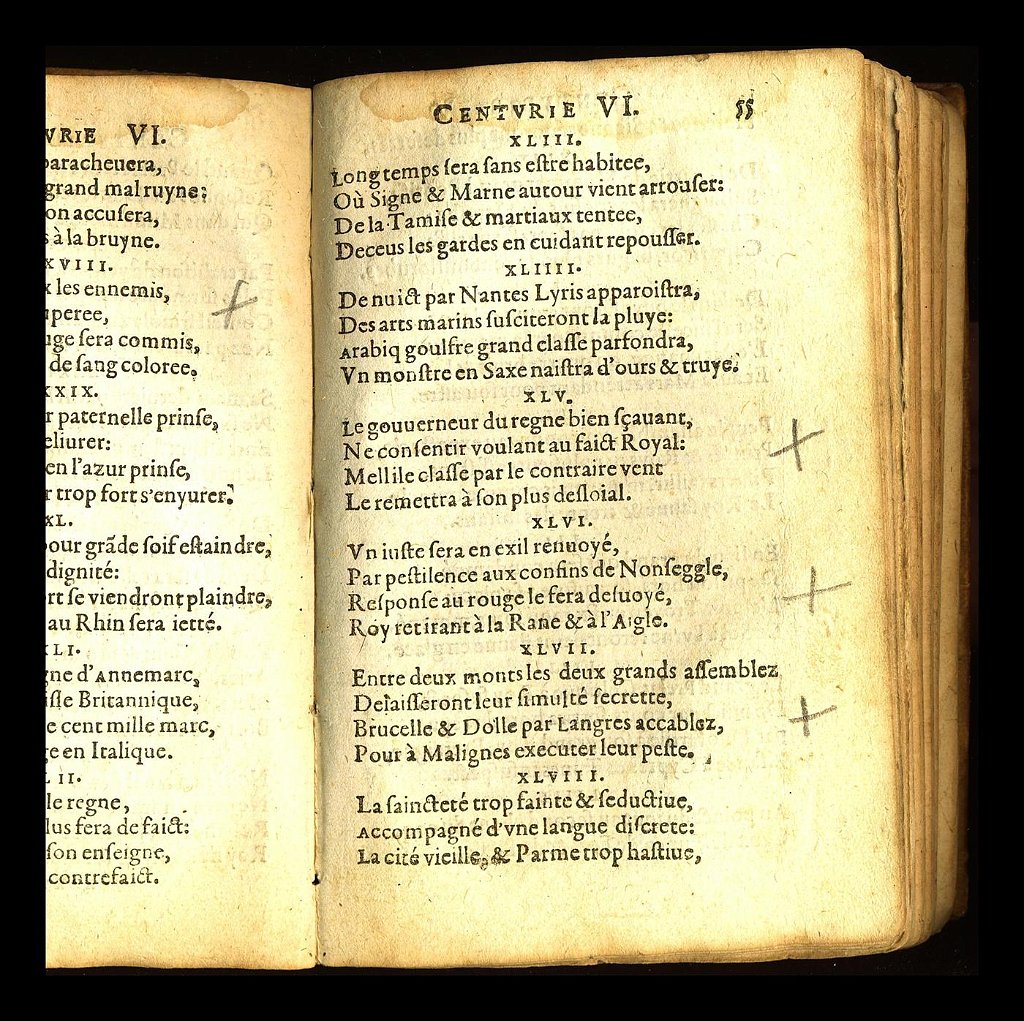 VRIE VI.
paracheuera,
grand mal ruyne:
on accuſera,
à la bruyne.
XVIII.
les ennemis,
peree,
ge ſera commis,
de ſang coloree,
XXIX.
paternelle prinſe,
eliurer:
en l'azur prinſe,
trop fort s'enyurer.
XL.
our grãde ſoif eſtaindre,
dignité:
rt ſe viendront plaindre,
au Rhin ſera ietté.
LI.
ne d'Annemarc,
iſle Britannique,
e cent mille marc,
e en Italique.
II.
le regne,
lus fera de faict:
ſon enſeigne,
contrefaict.
CENTVRIE VI. 55
XLIII.
Long temps ſera ſans eſtre habitee,
Où Signe & Marne autour vient arrouſer:
De la Tamiſe & martiaux tentee,
Deceus les gardes en cuidant repouſſer.
XLIIII.
De nuict par Nantes Lyris apparoiſtra,
Des arts marins ſuſciteront la pluye:
Arabiq goulfre grand claſſe parfondra,
Vn monſtre en Saxe naiſtra d'ours & truye.
XLV.
Le gouuerneur du regne bien ſçauant,
Ne conſentir voulant au faict Royal:
Mellile claſſe par le contraire vent
Le remettra à ſon plus deſloial.
XLVI.
Vn iuſte ſera en exil renuoyé,
Par peſtilence aux confins de Nonſeggle,
Reſponſe au rouge le fera deſuoyé,
Roy retirant à la Rane & à l'Aigle.
XLVII.
Entre deux monts les deux grands aſſemblez
Delaiſſeront leur ſimulté ſecrette,
Brucelle & Dolle par Langres accablez,
Pour à Malignes executer leur peſte.
XLVIII.
La ſaincteté trop fainte & ſeductiue,
Accompagné d'vne langue diſcrete:
La cité vieille, & Parme trop haſtiue,